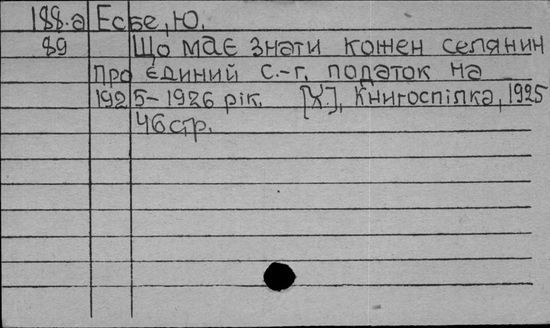 188.а Есбе, Ю.
89 Що має знати кожен селянин
про єдиний с.-г. податок на
1925-1926 рік. [Х.], Книгоспілка, 1925
46 стр.